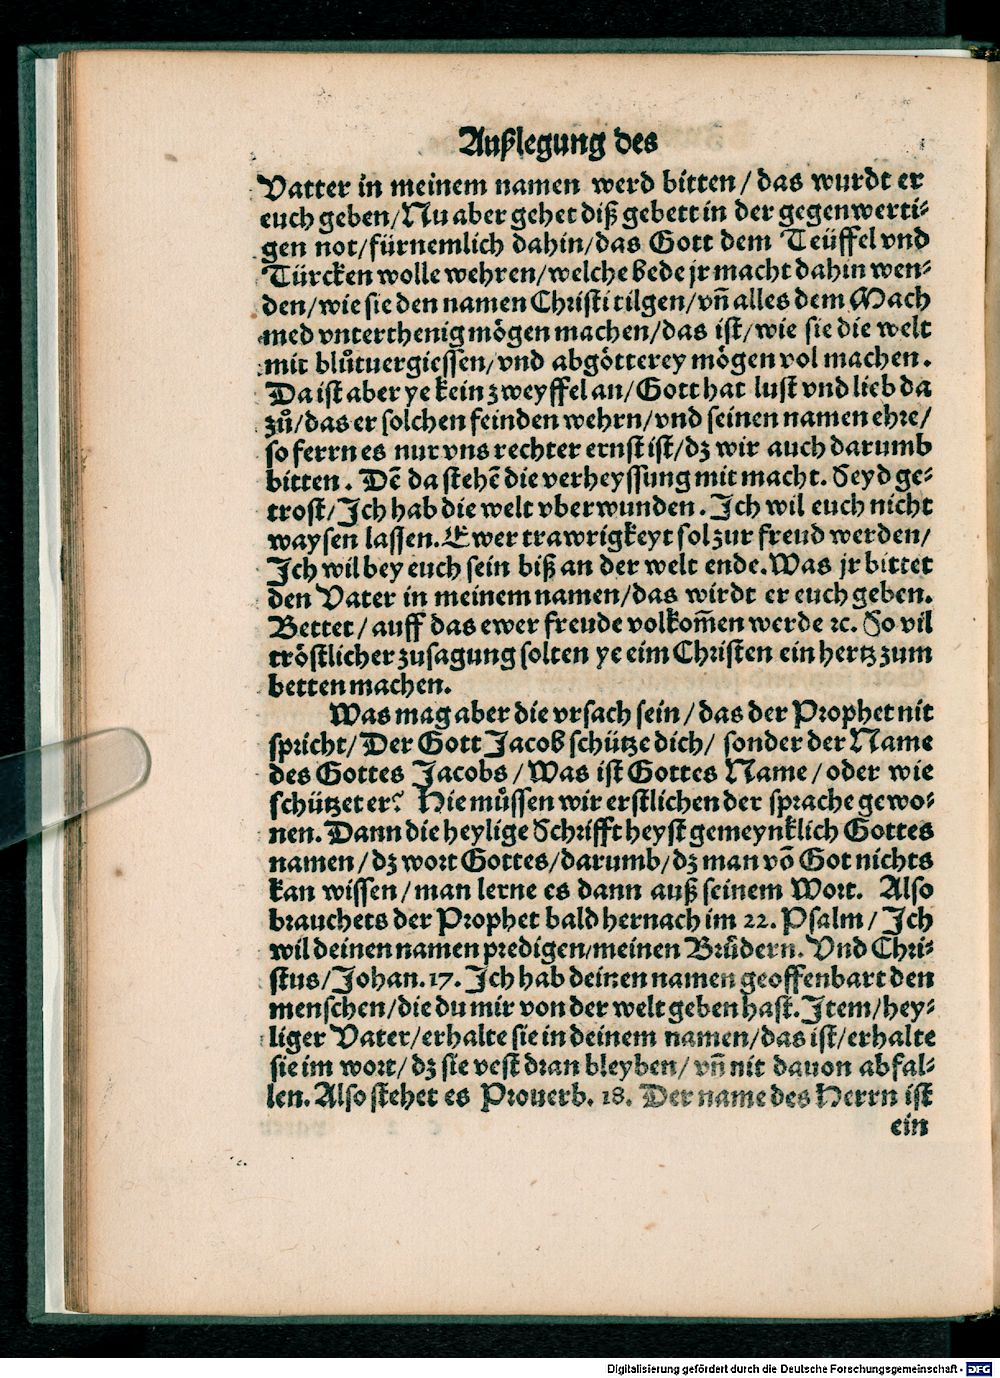 Außlegung des
Vatter in meinem namen werd bitten / das wurdt er
euch geben / Nu aber gehet diß gebett in der gegenwerti⸗
gen not / fürnemlich dahin / das Gott dem Teüffel vnd
Türcken wolle wehren / welche bede jr macht dahin wen⸗
den / wie sie den namen Christi tilgen / vñ alles dem Mach
med vnterthenig mögen machen / das ist / wie sie die welt
mit blůtuergiessen / vnd abgötterey mögen vol machen.
Da ist aber ye kein zweyffel an / Gott hat lust vnd lieb da
zů / das er solchen feinden wehrn / vnd seinen namen ehre /
so ferrn es nur vns rechter ernst ist / dz wir auch darumb
bitten. Dẽ da stehẽ die verheyssung mit macht. Seyd ge⸗
trost / Ich hab die welt vberwunden. Ich wil euch nicht
waysen lassen. Ewer trawrigkeyt sol zur freud werden /
Ich wil bey euch sein biß an der welt ende. Was jr bittet
den Vater in meinem namen / das wirdt er euch geben.
Bettet / auff das ewer freude volkom̃en werde ꝛc. So vil
tröstlicher zusagung solten ye eim Christen ein hertz zum
betten machen.
Was mag aber die vrsach sein / das der Prophet nit
spricht / Der Gott Jacob schütze dich / sonder der Name
des Gottes Jacobs / Was ist Gottes Name / oder wie
schützet er? Hie můssen wir erstlichen der sprache gewo⸗
nen. Dann die heylige Schrifft heyst gemeynklich Gottes
namen / dz wort Gottes / darumb / dz man võ Got nichts
kan wissen / man lerne es dann auß seinem Wort. Also
brauchets der Prophet bald hernach im 22. Psalm / Ich
wil deinen namen predigen / meinen Brüdern. Vnd Chri⸗
stus / Johan. 17. Ich hab deinen namen geoffenbart den
menschen / die du mir von der welt geben hast. Item / hey⸗
liger Vater / erhalte sie in deinem namen / das ist / erhalte
sie im wort / dz sie vest dran bleyben / vñ nit dauon abfal⸗
len. Also stehet es Prouerb. 18. Der name des Herrn ist
ein
Digitalisierung gefördert durch die Deutsche Forschungsgemeinschaft - DFG